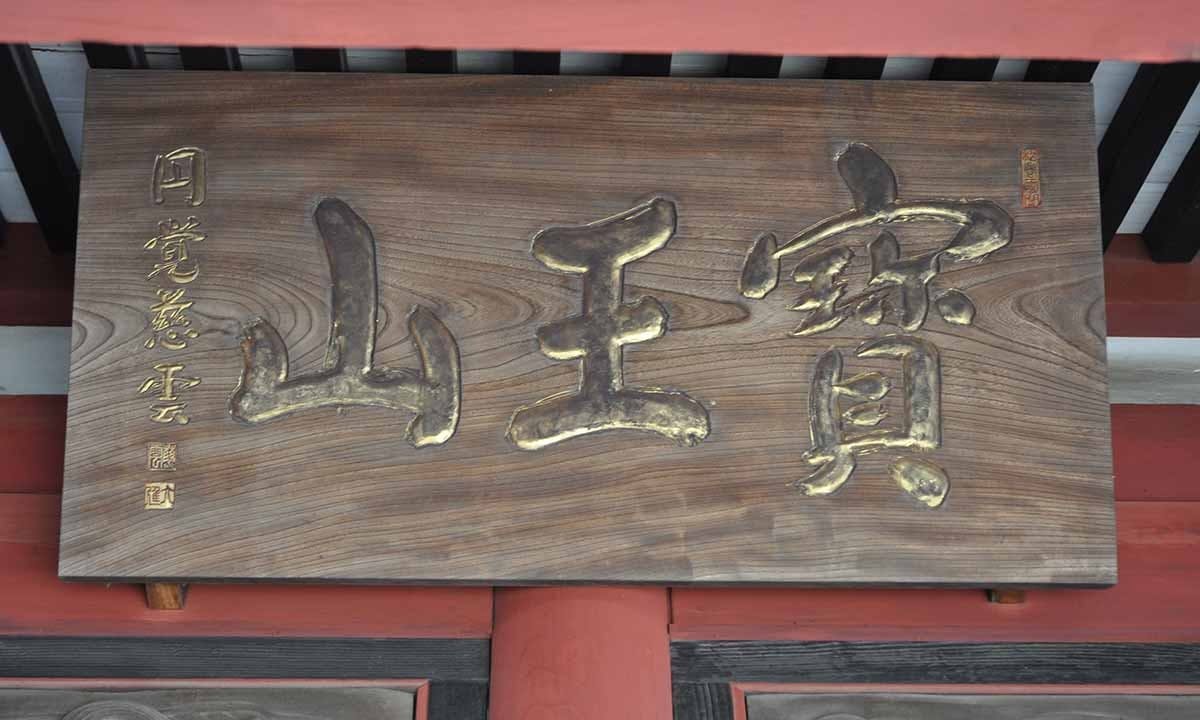 寳王山
円覚慈雲